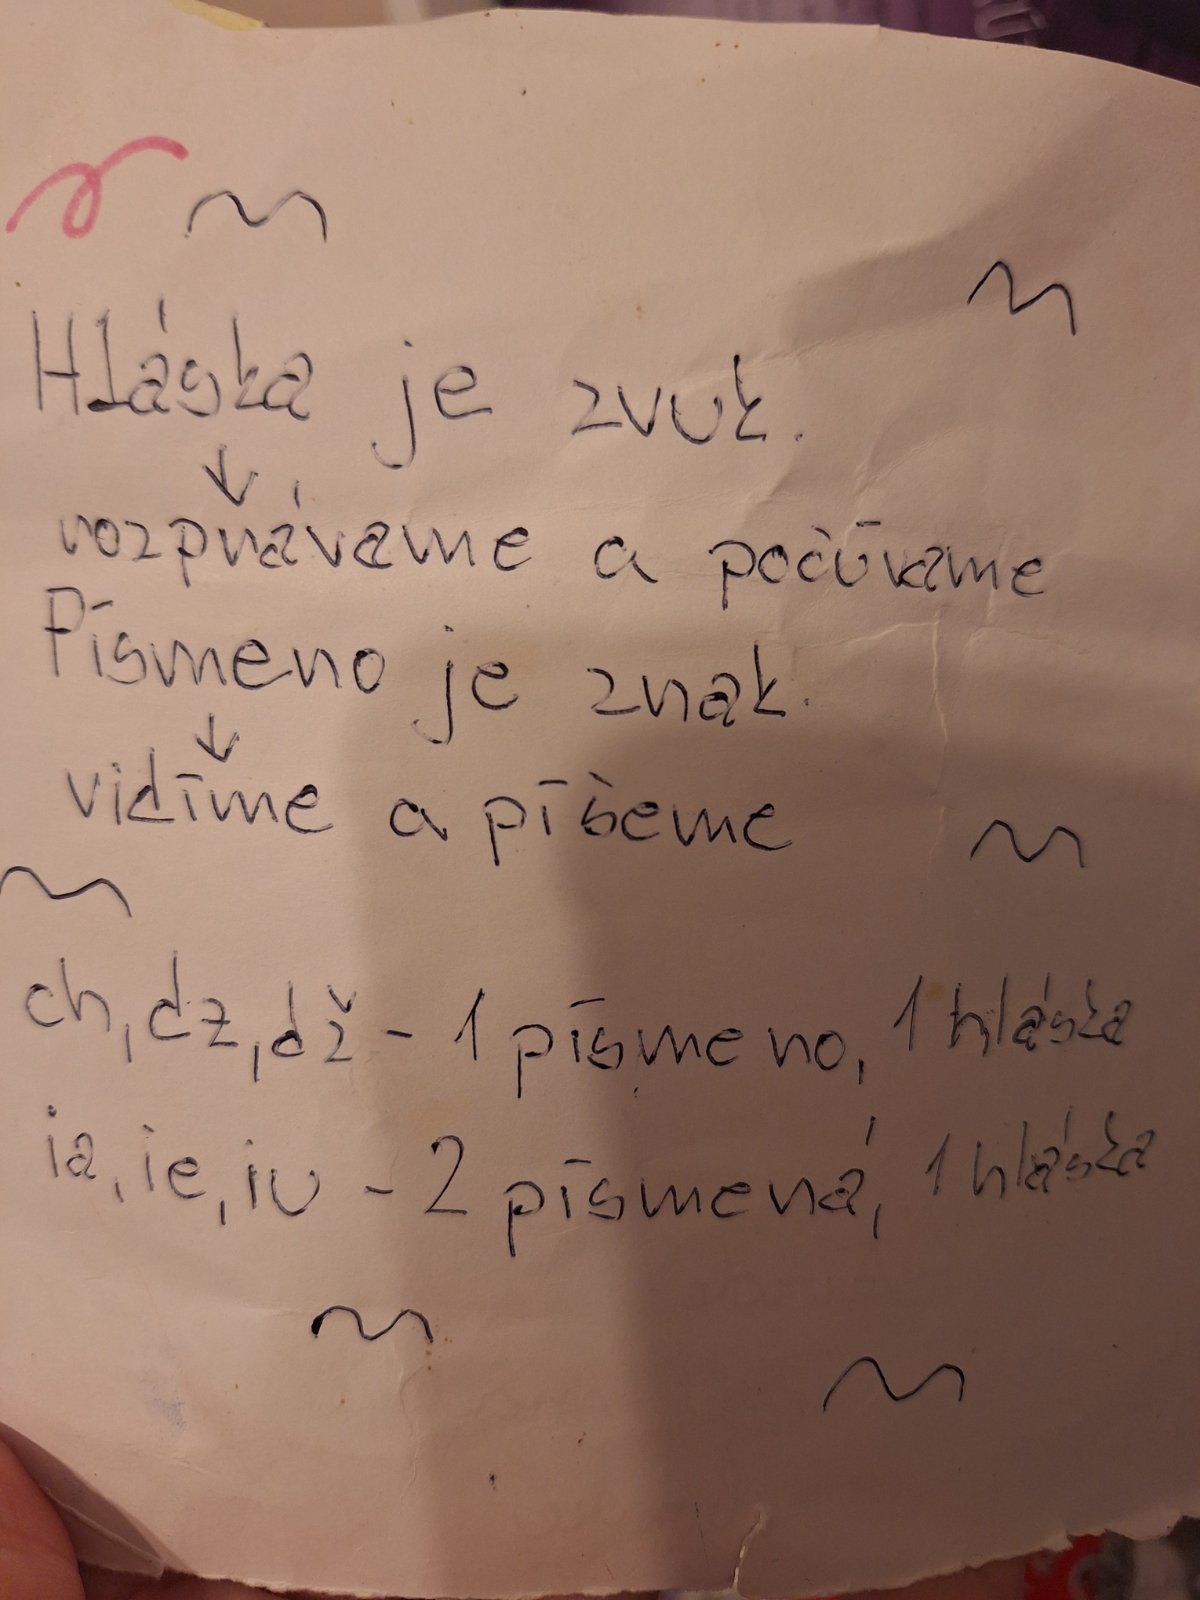 Hláska je zvuk.
↓
rozprávame a počúvame
Písmeno je znak.
↓
vidíme a píšeme
ch, dz, dž - 1 písmeno, 1 hláska
ia, ie, iu - 2 písmená, 1 hláska